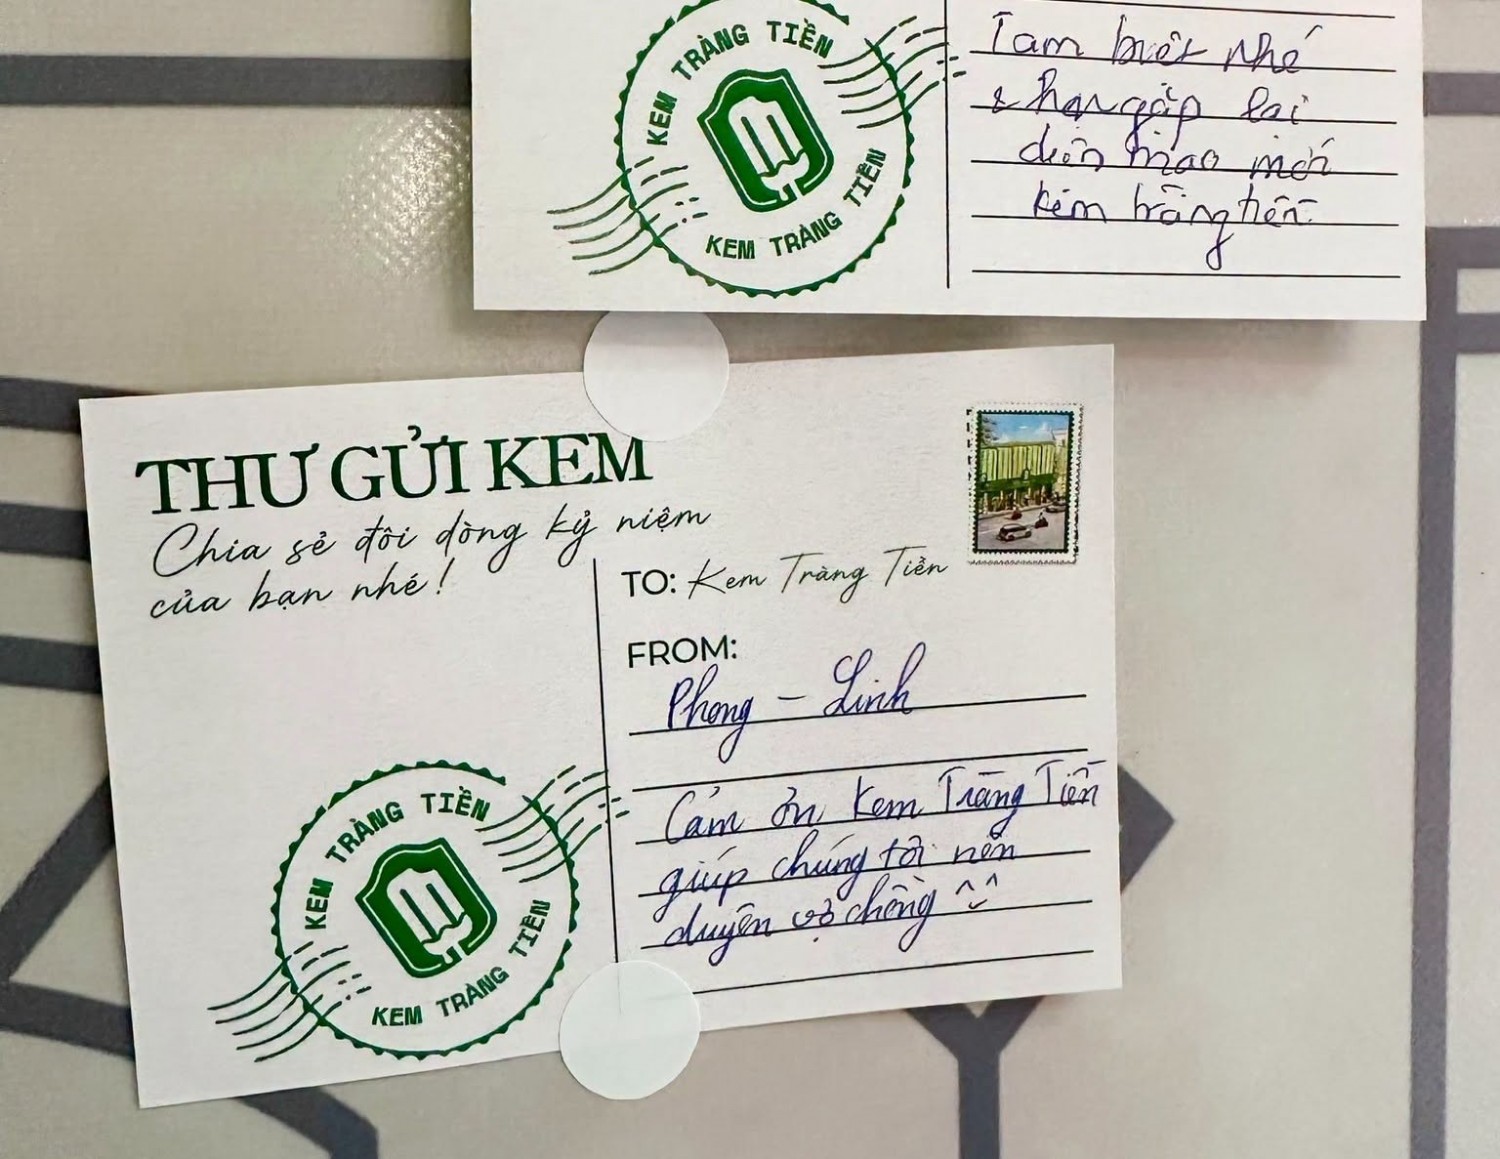 KEM TRÀNG TIỀN
KEM TRÀNG TIỀN
Tạm biệt nhé
& hẹn gặp lại
diện mạo mới
kem tràng tiền.
THƯ GỬI KEM
Chia sẻ đôi dòng kỷ niệm
của bạn nhé!
TO: Kem Tràng Tiền
FROM:
Phong - Linh
Cảm ơn Kem Tràng Tiền
giúp chúng tôi nên
duyên vợ chồng ^^
KEM TRÀNG TIỀN
KEM TRÀNG TIỀN